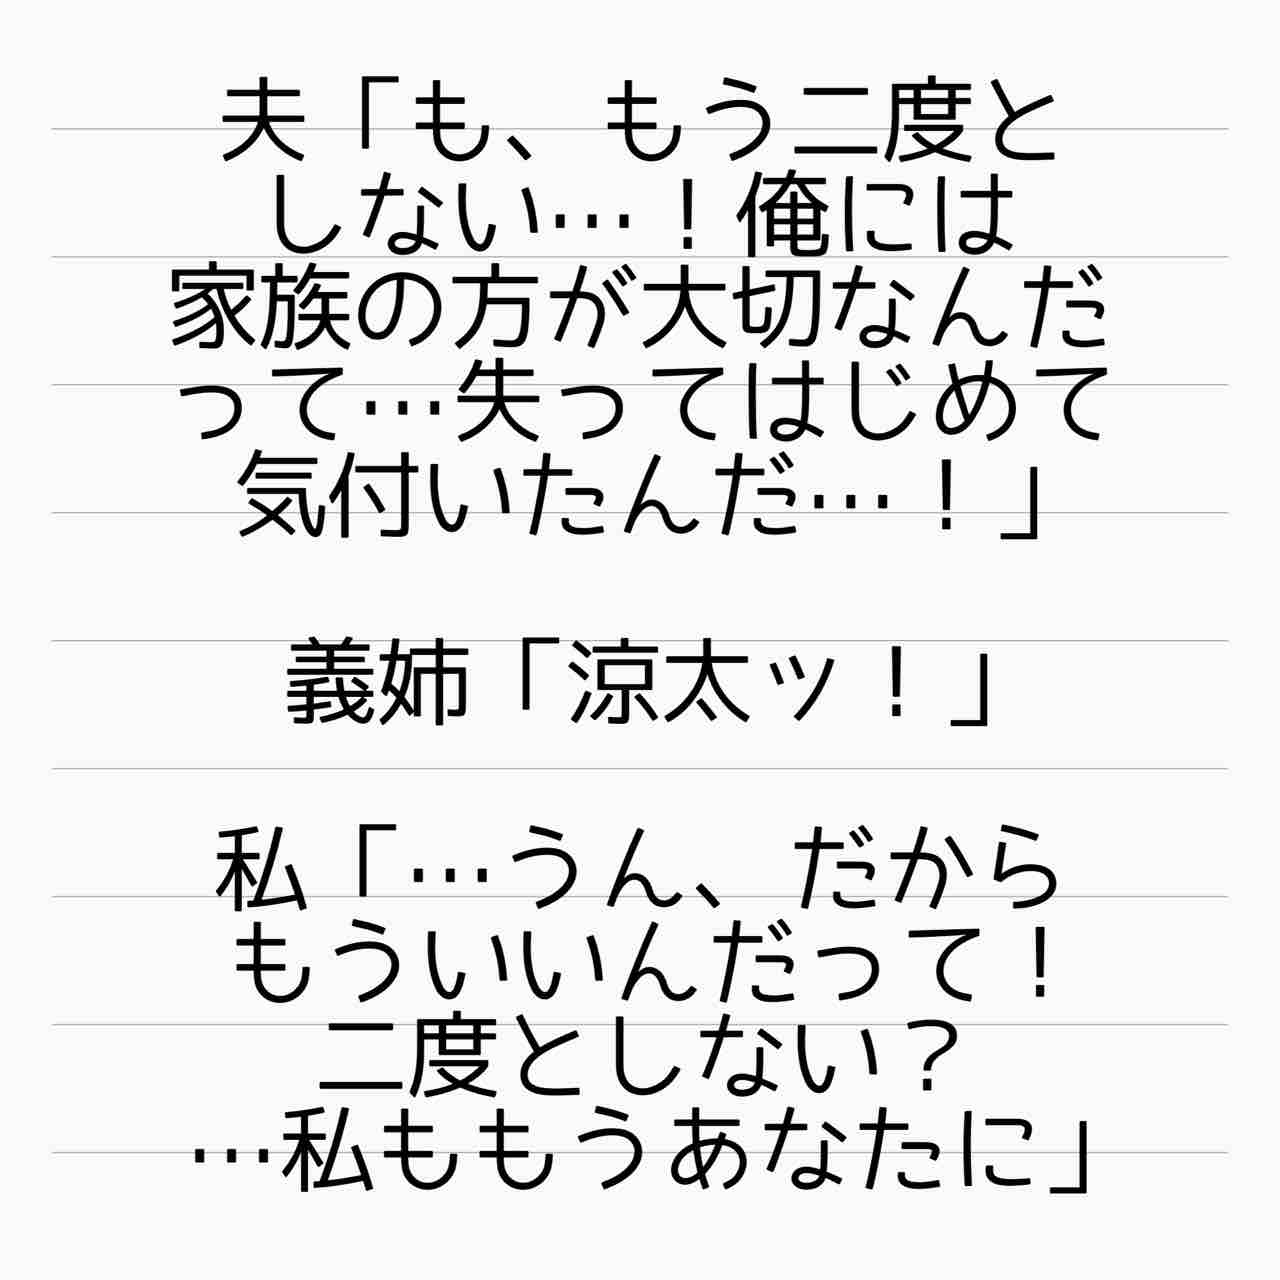 夫「も、もう二度と
しない…！俺には
家族の方が大切なんだ
って…失ってはじめて
気付いたんだ…！」
義姉「涼太ッ！」
私「…うん、だから
もういいんだって！
二度としない？
…私ももうあなたに」